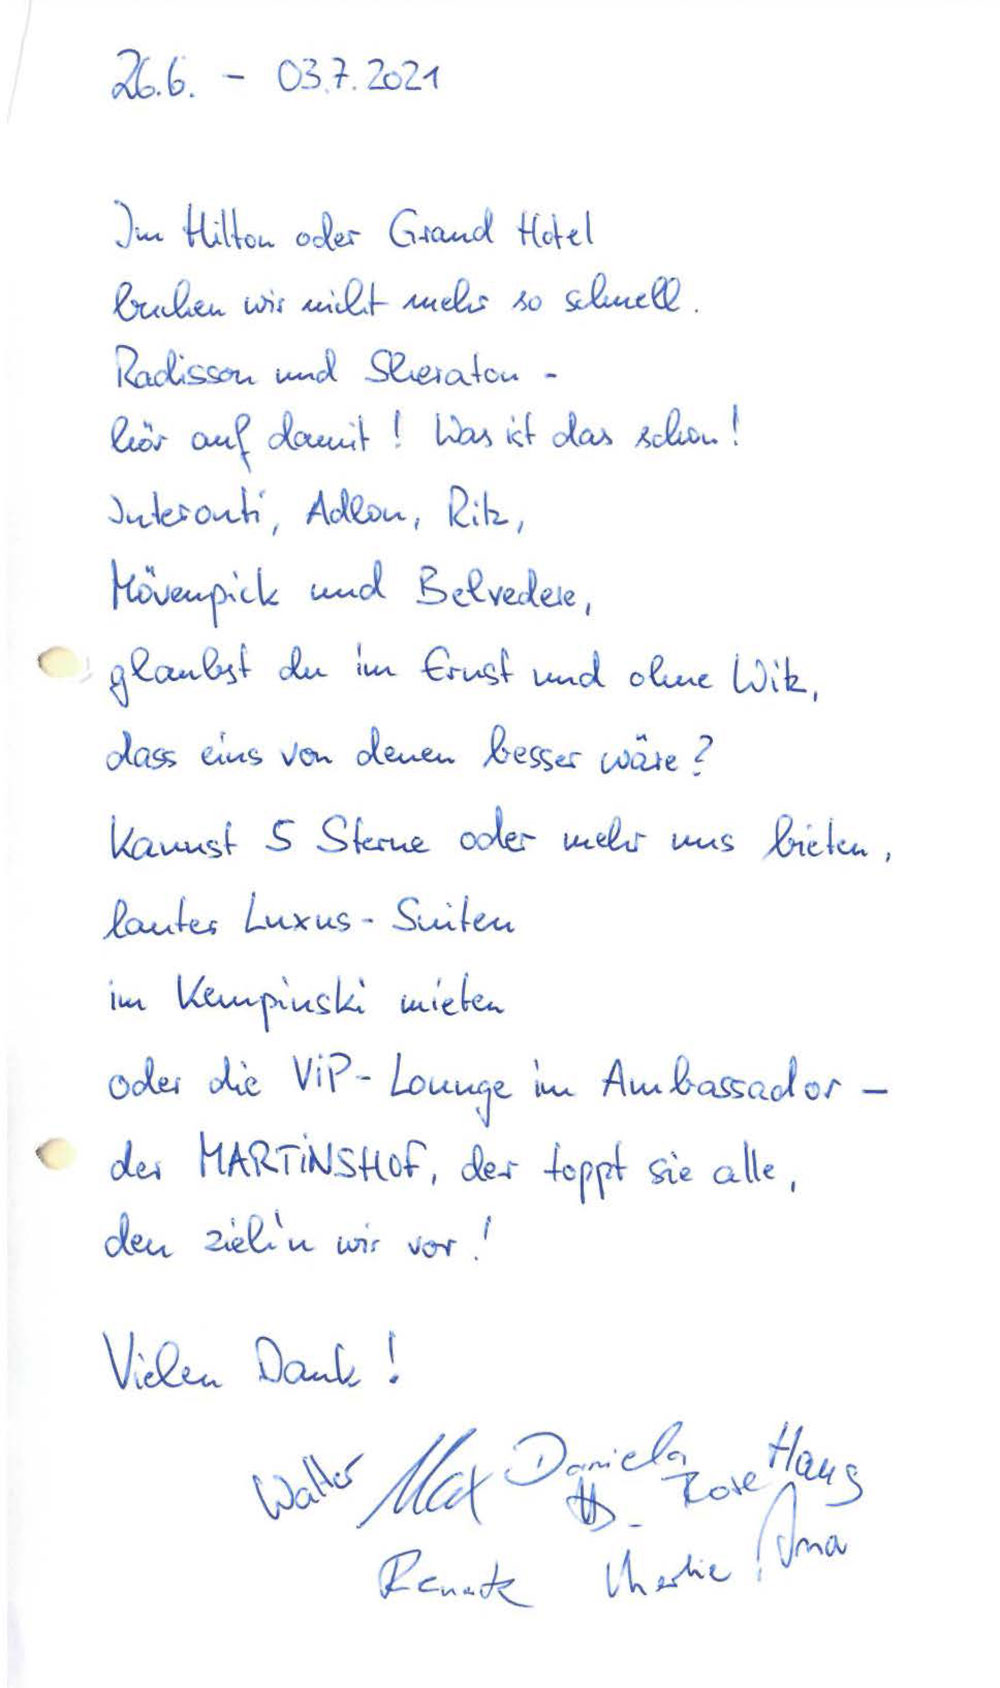 26.6. - 03.7.2021
Im Hilton oder Grand Hotel
buchen wir nicht mehr so schnell.
Radisson und Sheraton -
hör auf damit! Was ist das schon!
Interonti, Adlon, Ritz,
Mövenpick und Belvedere,
glaubst du im Ernst und ohne Witz,
dass eins von denen besser wäre?
Kannst 5 Sterne oder mehr uns bieten,
lauter Luxus-Suiten
im Kempinski mieten
oder die ViP-Lounge im Ambassador -
der MARTiNSHOF, der toppt sie alle,
den zieh'n wir vor!
Vielen Dank!
Walter Max Daniela Rose Hans
Renate